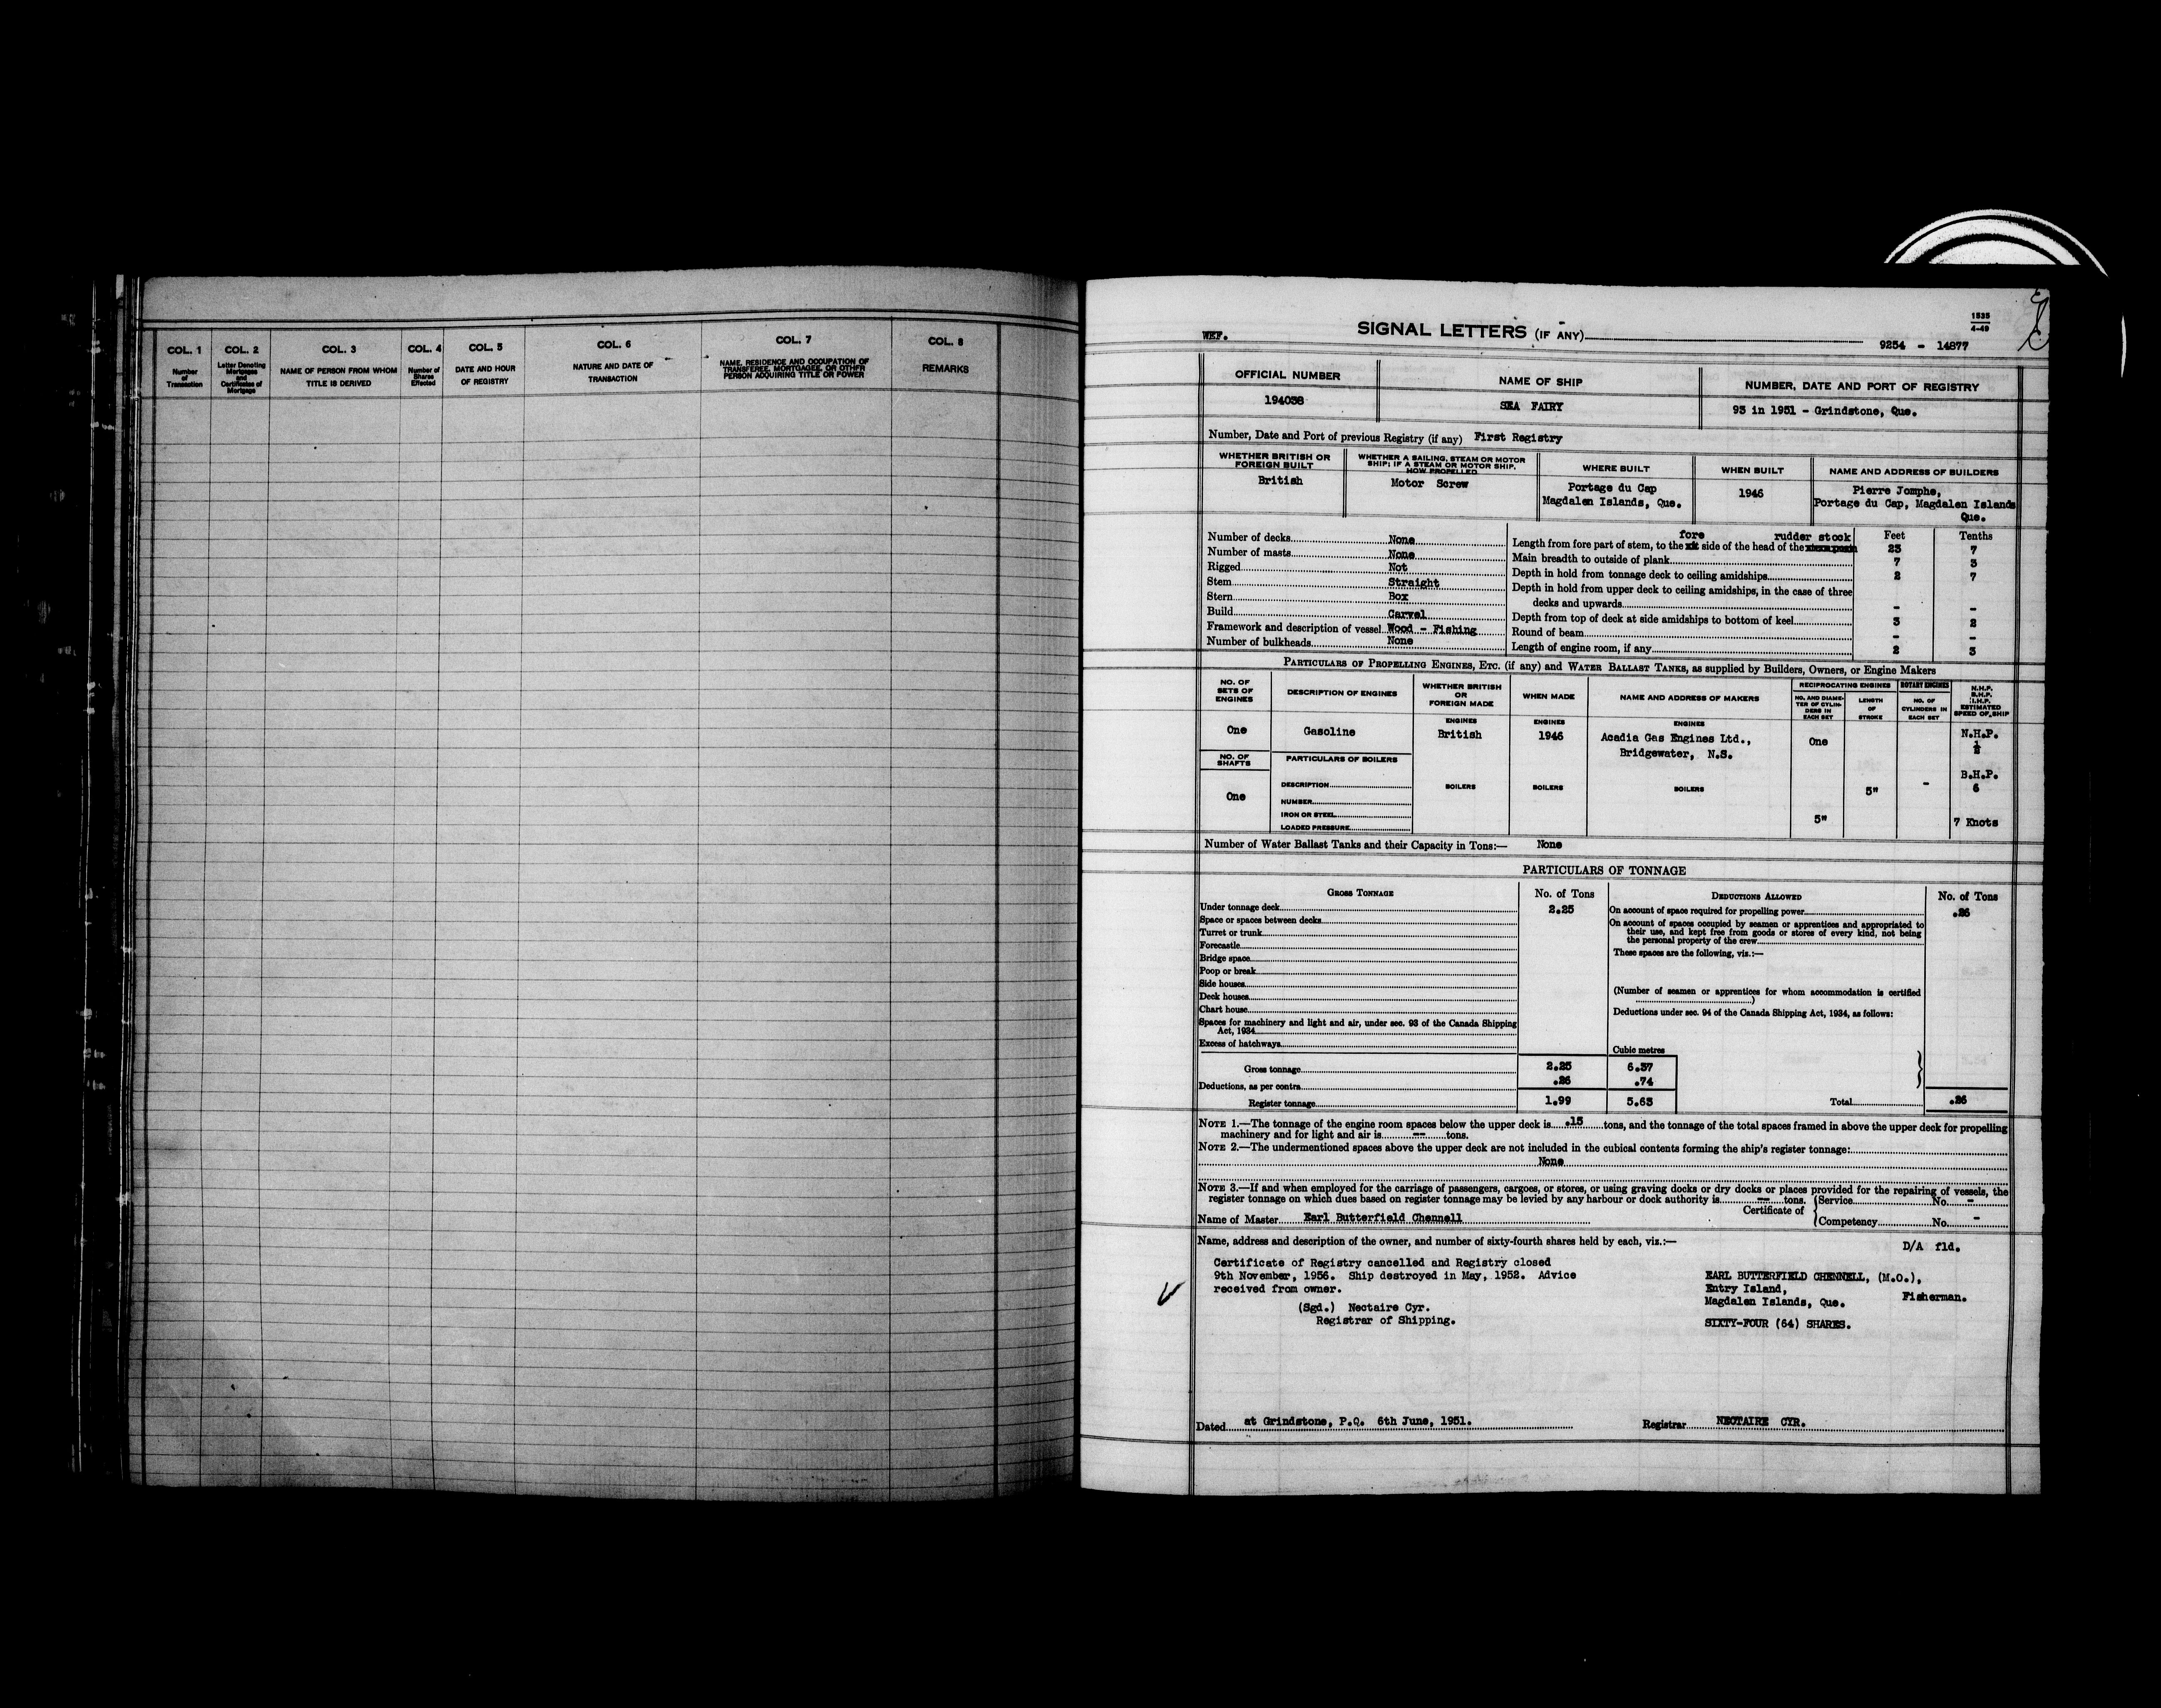 COL. 1
Number
of
Transaction
COL. 2
Letter Denoting
Mortgages
and
Certificates of
Mortgage
COL. 3
NAME OF PERSON FROM WHOM
TITLE IS DERIVED
COL. 4
Number of
Shares
Effected
COL. 5
DATE AND HOUR
OF REGISTRY
COL. 6
NATURE AND DATE OF
TRANSACTION
COL. 7
NAME, RESIDENCE AND OCCUPATION OF
TRANSFEREE, MORTGAGEE, OR OTHER
PERSON ACQUIRING TITLE OR POWER
COL. 8
REMARKS
WEF.
SIGNAL LETTERS (IF ANY)
1535
4-49
9254 - 14877
OFFICIAL NUMBER
194038
NAME OF SHIP
SEA FAIRY
NUMBER, DATE AND PORT OF REGISTRY
93 in 1951 - Grindstone, Que.
Number, Date and Port of previous Registry (if any) First Registry
WHETHER BRITISH OR
FOREIGN BUILT
British
WHETHER A SAILING, STEAM OR MOTOR
SHIP; IF A STEAM OR MOTOR SHIP,
HOW PROPELLED
Motor Screw
WHERE BUILT
Portage du Cap
Magdalen Islands, Que.
WHEN BUILT
1946
NAME AND ADDRESS OF BUILDERS
Pierre Jomphe,
Portage du Cap, Magdalen Islands
Que.
Number of decks None
Number of masts None
Rigged Not
Stem Straight
Stern Box
Build Carvel
Framework and description of vessel Wood - Fishing
Number of bulkheads None
Feet Tenths
fore rudder stock
Length from fore part of stem, to the side of the head of the 23 7
Main breadth to outside of plank 7 3
Depth in hold from tonnage deck to ceiling amidships 2 7
Depth in hold from upper deck to ceiling amidships, in the case of three
decks and upwards - -
Depth from top of deck at side amidships to bottom of keel 3 2
Round of beam - -
Length of engine room, if any 2 3
PARTICULARS OF PROPELLING ENGINES, ETC. (if any) and WATER BALLAST TANKS, as supplied by Builders, Owners, or Engine Makers
NO. OF
SETS OF
ENGINES
One
NO. OF
SHAFTS
One
DESCRIPTION OF ENGINES
Gasoline
PARTICULARS OF BOILERS
DESCRIPTION
NUMBER
IRON OR STEEL
LOADED PRESSURE
WHETHER BRITISH
OR
FOREIGN MADE
ENGINES
British
BOILERS
WHEN MADE
ENGINES
1946
BOILERS
NAME AND ADDRESS OF MAKERS
ENGINES
Acadia Gas Engines Ltd.,
Bridgewater, N.S.
BOILERS
RECIPROCATING ENGINES
NO. AND DIAME-
TER OF CYLIN-
DERS IN
EACH SET
One
5"
LENGTH
OF
STROKE
5"
ROTARY ENGINES
NO. OF
CYLINDERS IN
EACH SET
-
N.H.P.
B.H.P.
I.H.P.
ESTIMATED
SPEED OF SHIP
N.H.P.
½
B.H.P.
6
7 Knots
Number of Water Ballast Tanks and their Capacity in Tons:— None
PARTICULARS OF TONNAGE
GROSS TONNAGE No. of Tons
Under tonnage deck 2.25
Space or spaces between decks
Turret or trunk
Forecastle
Bridge space
Poop or break
Side houses
Deck houses
Chart house
Spaces for machinery and light and air, under sec. 93 of the Canada Shipping
Act, 1934
Excess of hatchways
Cubic metres
Gross tonnage 2.25 6.37
Deductions, as per contra .26 .74
Register tonnage 1.99 5.63
DEDUCTIONS ALLOWED No. of Tons
On account of space required for propelling power .26
On account of spaces occupied by seamen or apprentices and appropriated to
their use, and kept free from goods or stores of every kind, not being
the personal property of the crew
These spaces are the following, viz.:—
(Number of seamen or apprentices for whom accommodation is certified
)
Deductions under sec. 94 of the Canada Shipping Act, 1934, as follows:
Total .26
NOTE 1.—The tonnage of the engine room spaces below the upper deck is .15 tons, and the tonnage of the total spaces framed in above the upper deck for propelling
machinery and for light and air is -- tons.
NOTE 2.—The undermentioned spaces above the upper deck are not included in the cubical contents forming the ship's register tonnage:
None
NOTE 3.—If and when employed for the carriage of passengers, cargoes, or stores, or using graving docks or dry docks or places provided for the repairing of vessels, the
register tonnage on which dues based on register tonnage may be levied by any harbour or dock authority is -- tons.
Certificate of
Service No. -
Competency No. -
Name of Master Earl Butterfield Chennell
Name, address and description of the owner, and number of sixty-fourth shares held by each, viz.:—
D/A fld.
Certificate of Registry cancelled and Registry closed
9th November, 1956. Ship destroyed in May, 1952. Advice
received from owner.
(Sgd.) Nectaire Cyr.
Registrar of Shipping.
EARL BUTTERFIELD CHENNELL, (M.O.),
Entry Island,
Magdalen Islands, Que. Fisherman.
SIXTY-FOUR (64) SHARES.
Dated at Grindstone, P.Q. 6th June, 1951.
Registrar NECTAIRE CYR.